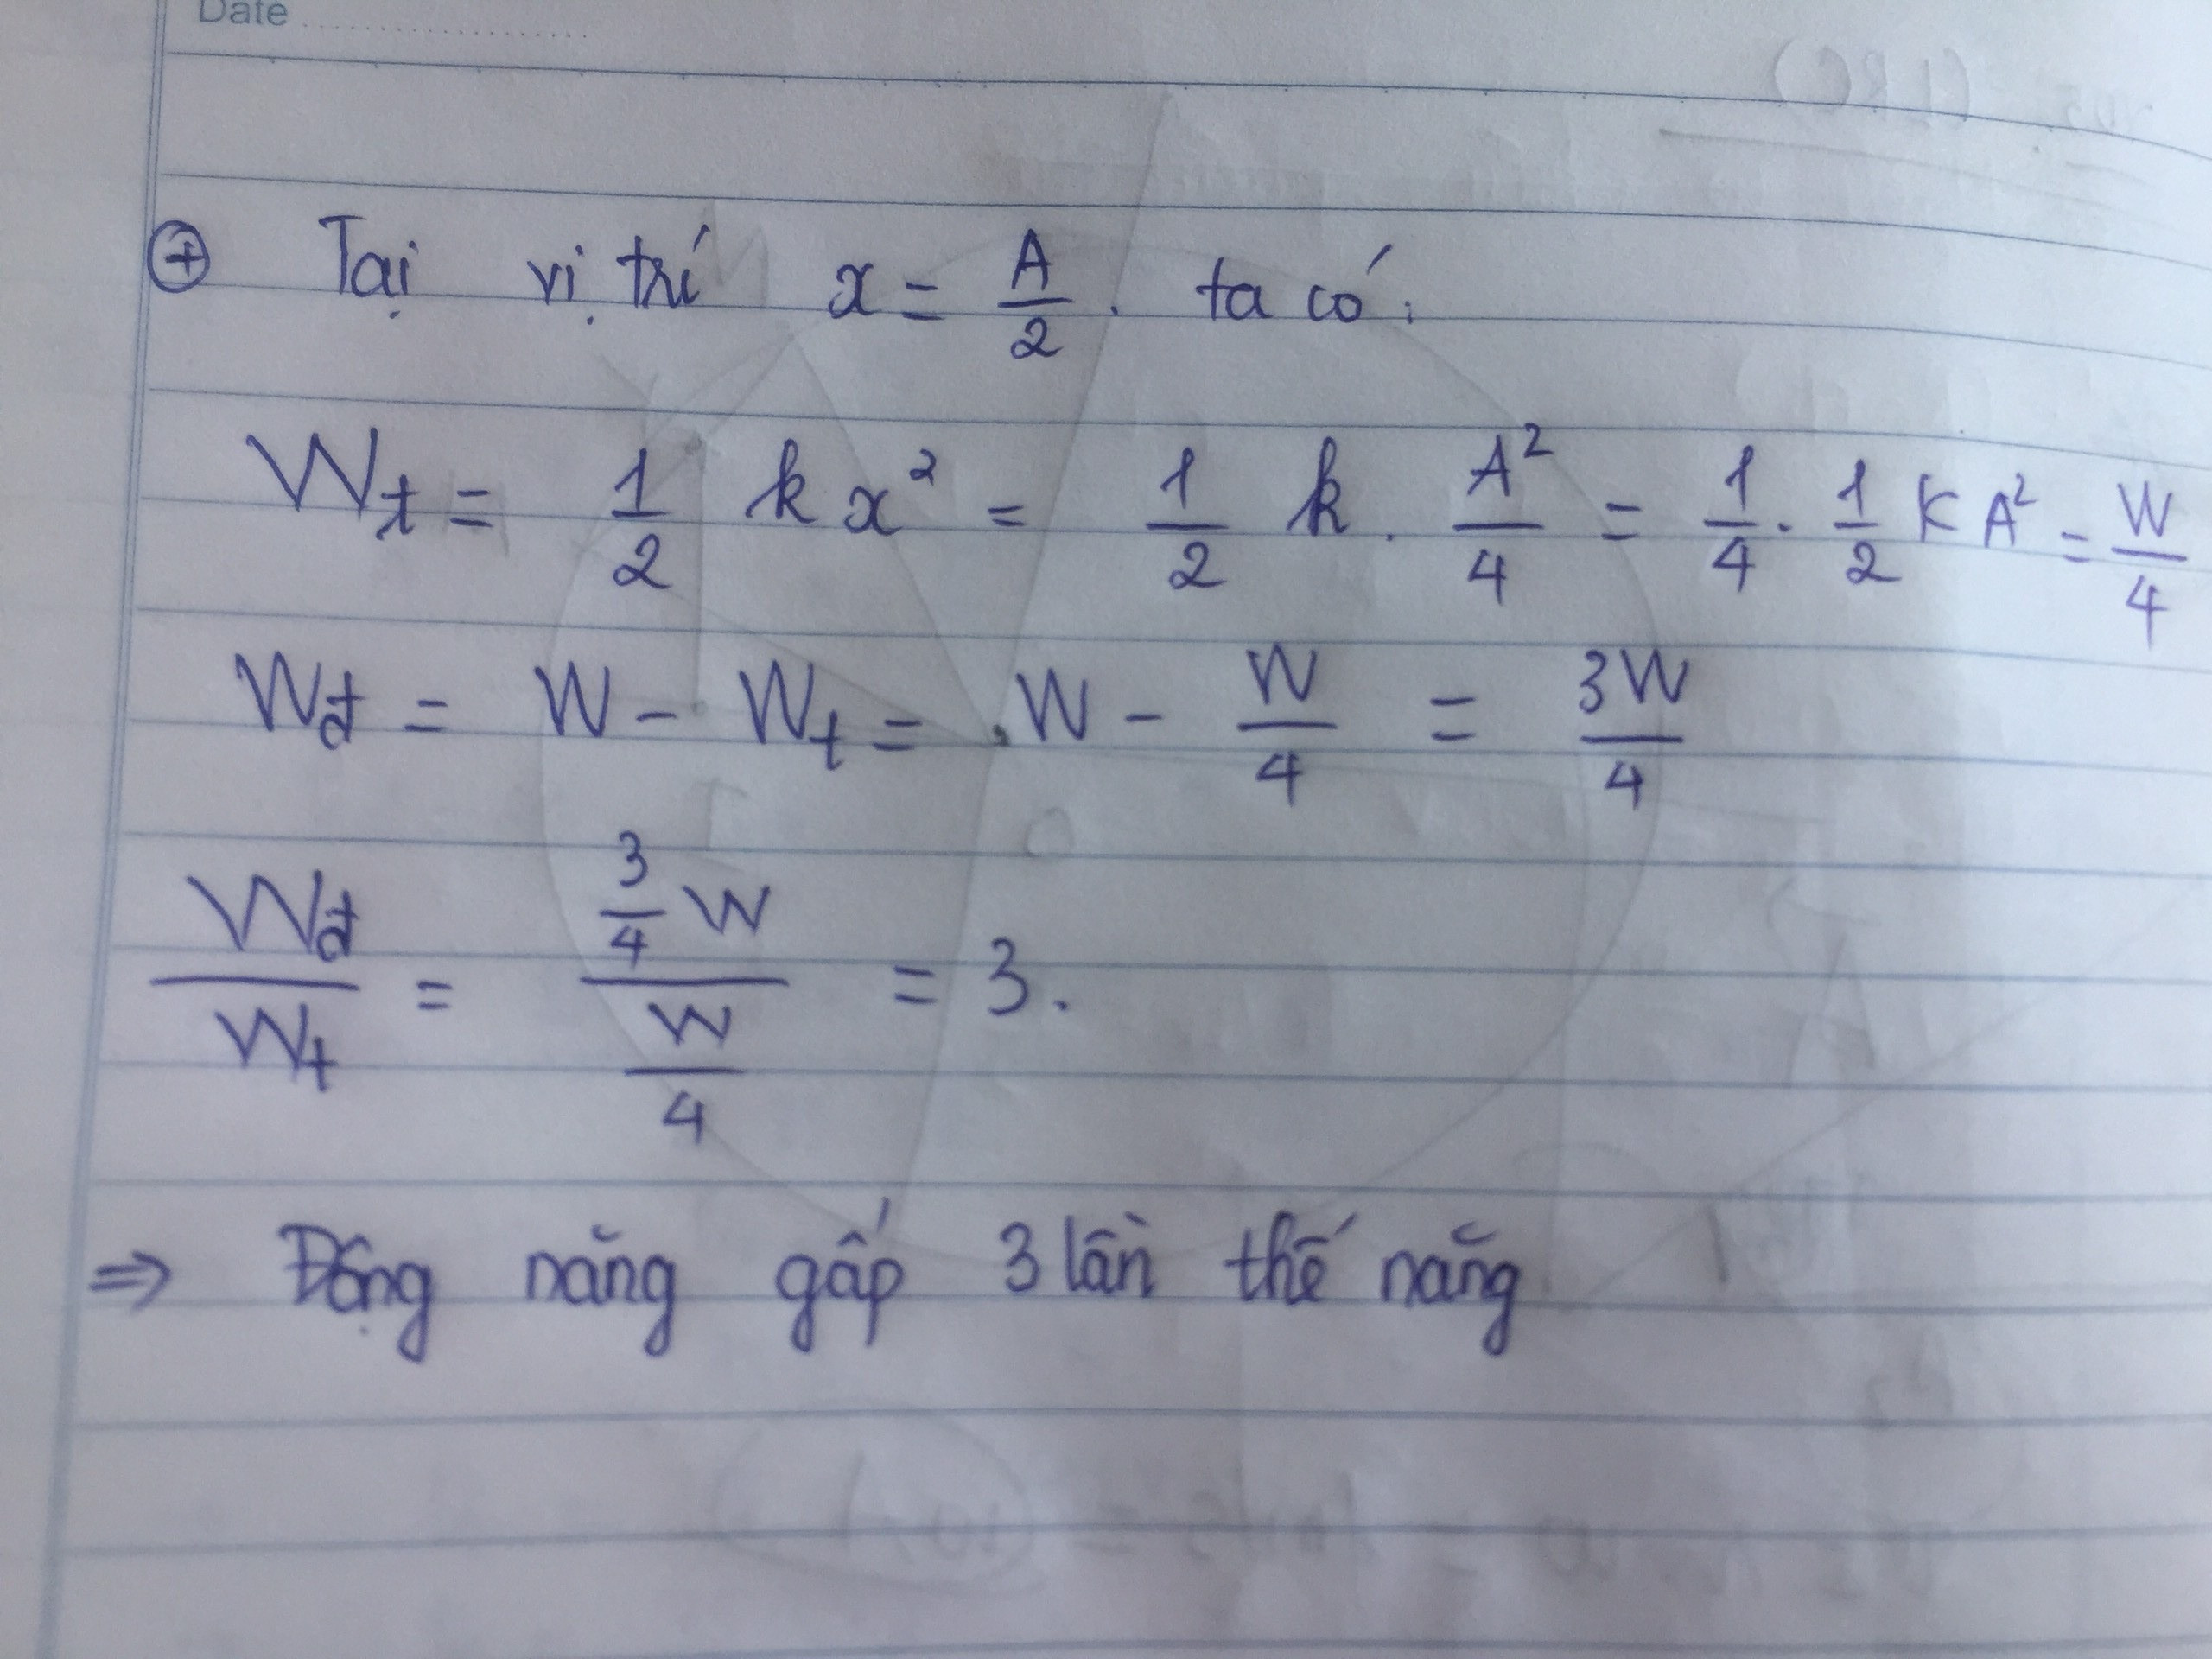 Date
⊕ Tại vị trí x = A/2 . ta có:
Wt = 1/2 k x² = 1/2 k . A²/4 = 1/4 . 1/2 K A² = W/4
Wđ = W - Wt = W - W/4 = 3W/4
Wđ/Wt = (3/4 W)/(W/4) = 3.
⇒ Động năng gấp 3 lần thế năng